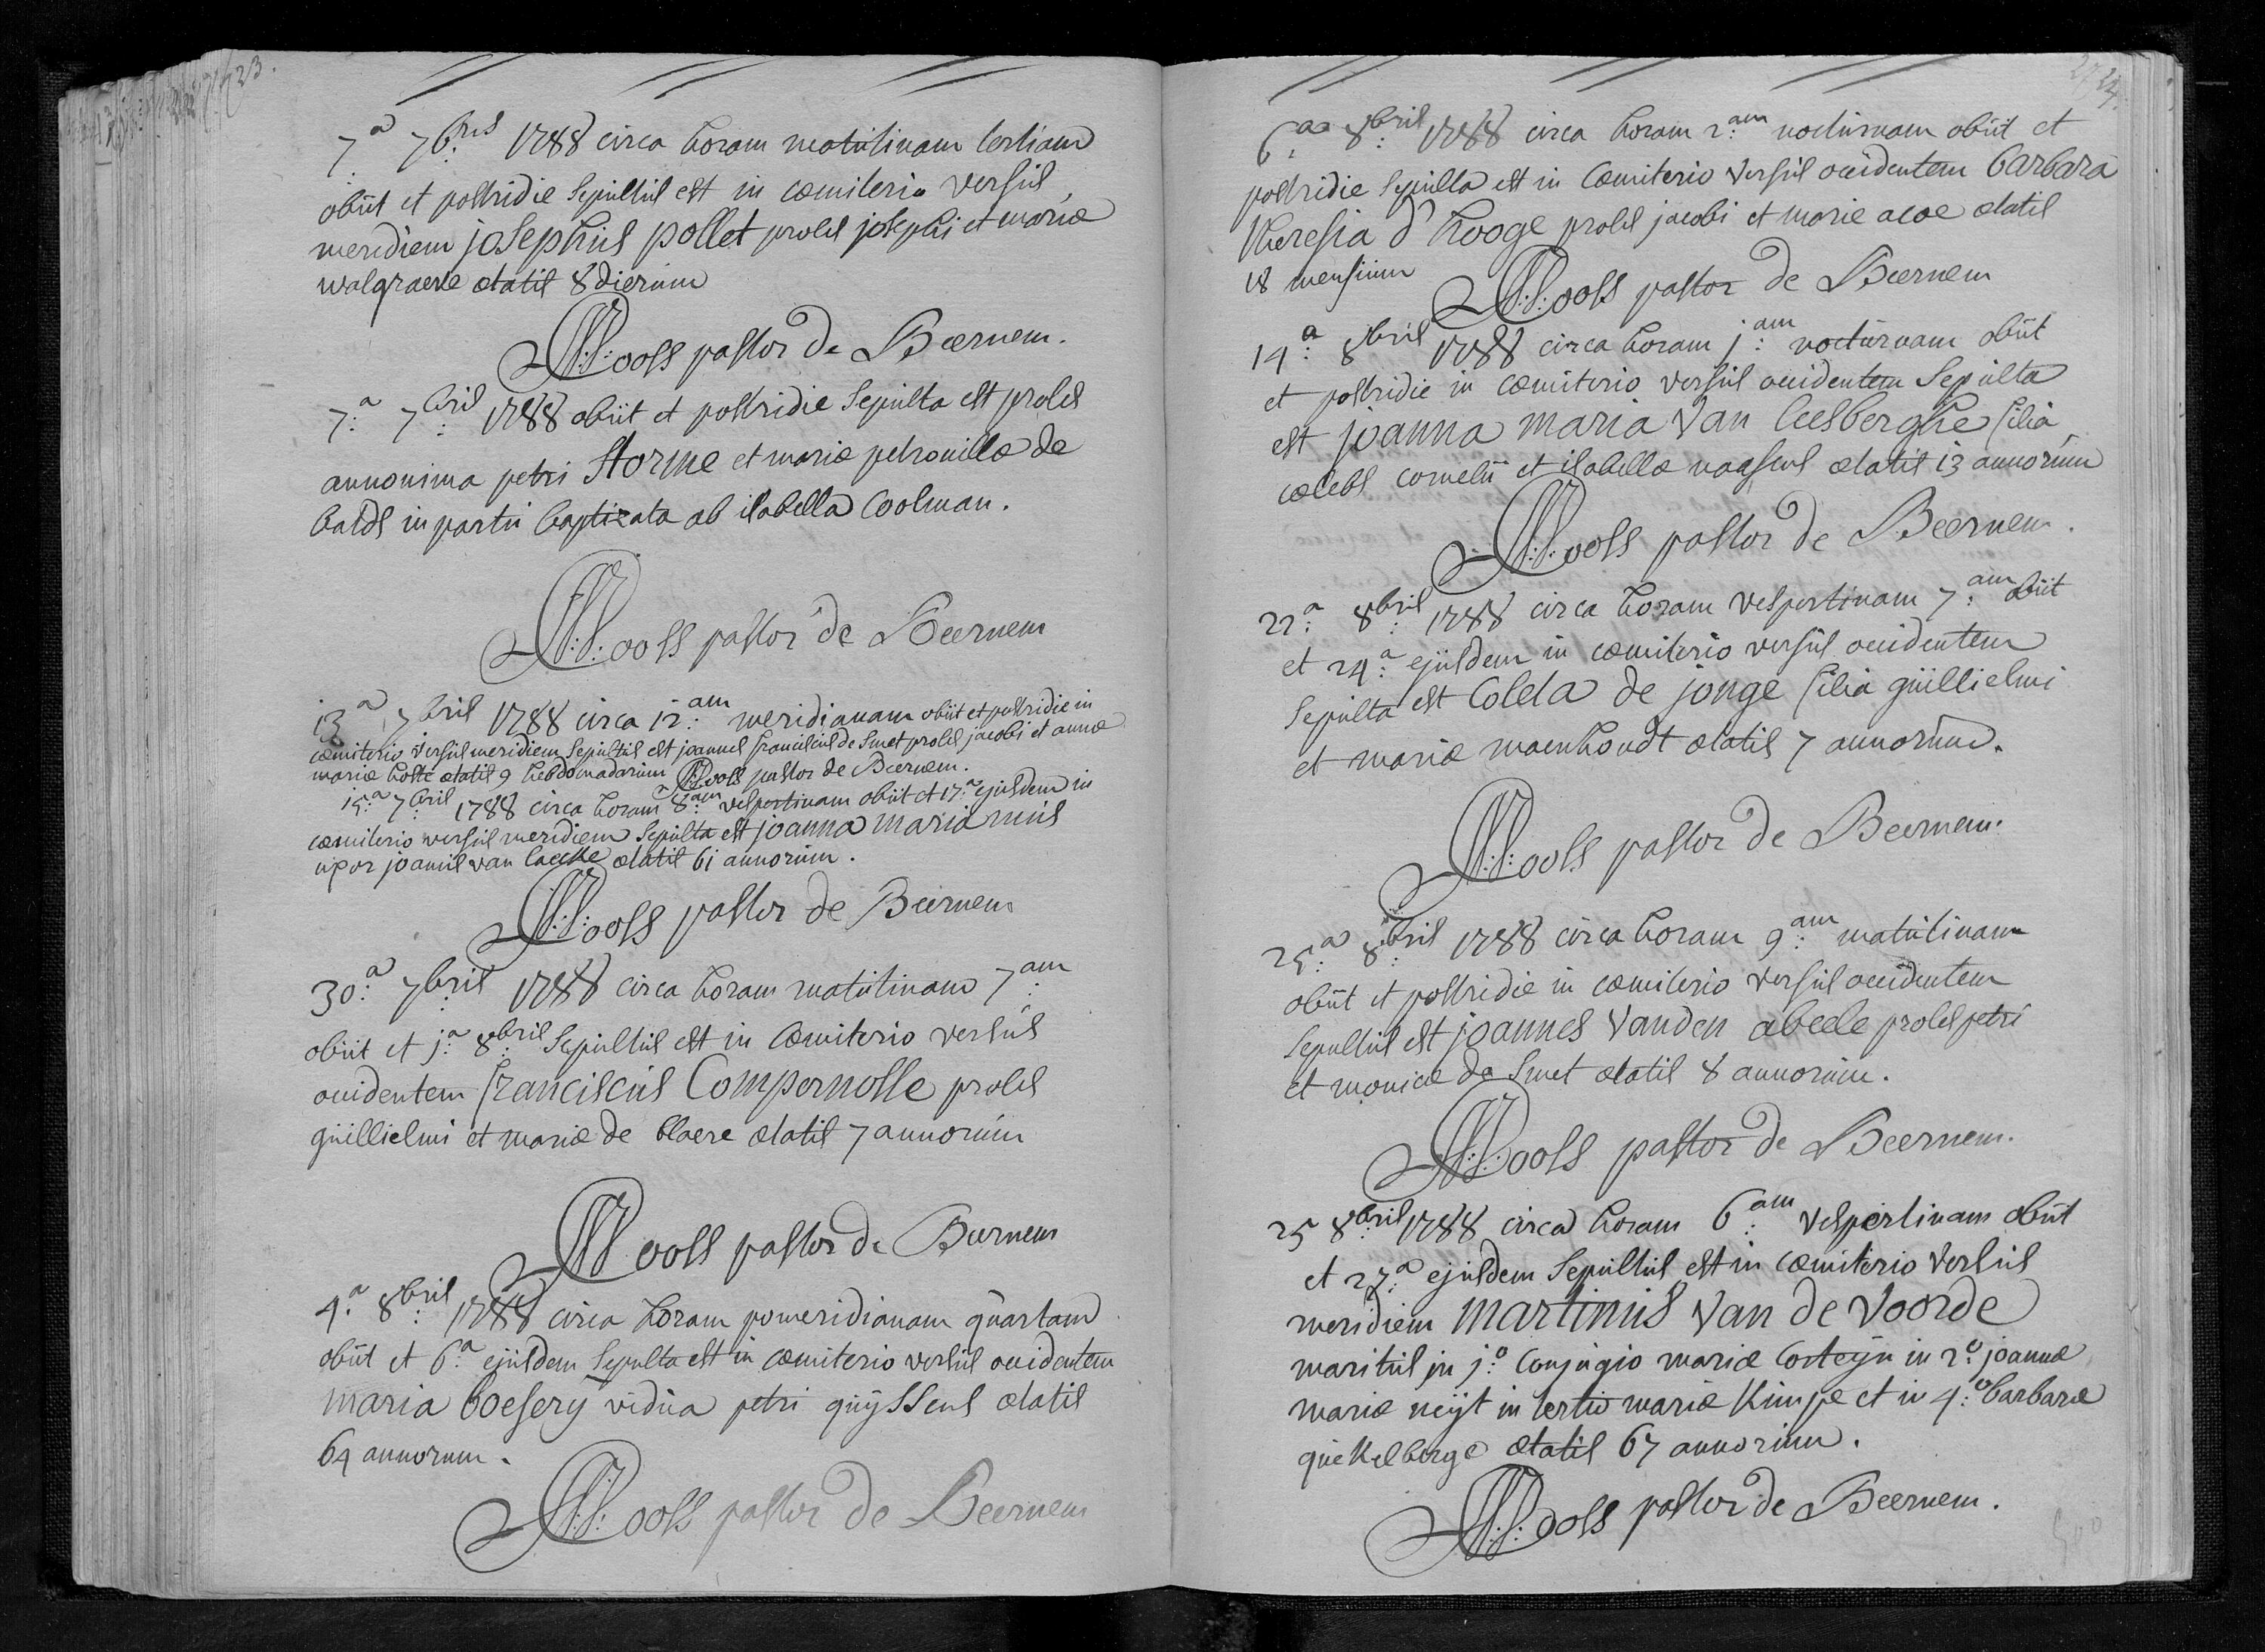 7.a 7bris 1788 circa horam matutinam tertiam
obiit et postridie sepultus est in cœmiterio versus
meridiem josephus pollet proles josephi et mariæ
walgraeve ætatis 8 dierum
Mools pastor de Beernem.
7.a 7bris 1788 obiit et postridie sepulta est proles
annonima petri Storme et mariæ petronillæ de
baets in partu baptizata ab isabella Coolman.
Mools pastor de Beernem
13.a 7bris 1788 circa 12.am meridianam obiit et postridie in
cœmiterio versus meridiem sepultus est joannes franciscus de Smet proles jacobi et annæ
mariæ hoste ætatis 9 hebdomadarum Mools pastor de Beernem.
15.a 7bris 1788 circa horam 8.am vespertinam obiit et 17.a ejusdem in
cœmiterio versus meridiem sepulta est joanna maria
uxor joannis van ætatis 61 annorum.
Mools pastor de Beernem
30.a 7bris 1788 circa horam matutinam 7.am
obiit et j.a 8bris sepultus est in Cœmiterio versus
occidentem franciscus Compernolle proles
guillielmi et mariæ de blaere ætatis 7 annorum
Mools pastor de Beernem
4.a 8bris 1788 circa horam pomeridianam quartam
obiit et 6.a ejusdem sepulta est in cœmiterio versus occidentem
maria boesery vidua petri guyssens ætatis
64 annorum.
Mools pastor de Beernem
6.a 8bris 1788 circa horam 2.am nocturnam obiit et
postridie sepulta est in Cœmiterio versus occidentem barbara
theresia d'hooge proles jacobi et mariæ ætatis
18 mensium
Mools pastor de Beernem
14.a 8bris 1788 circa horam j.am nocturnam obiit
et postridie in cœmiterio versus occidentem sepulta
est joanna maria Van Ceesberghe filia
cælebs cornelii et isabellæ ætatis 13 annorum
Mools pastor de Beernem.
22.a 8bris 1788 circa horam vespertinam 7.am obiit
et 24.a ejusdem in cœmiterio versus occidentem
sepulta est Coleta de jonge filia guillielmi
et mariæ maenhoudt ætatis 7 annorum.
Mools pastor de Beernem.
25.a 8bris 1788 circa horam 9.am matutinam
obiit et postridie in cœmiterio versus occidentem
sepultus est joannes Vanden abeele proles petri
et monicæ de Smet ætatis 8 annorum.
Mools pastor de Beernem.
25 8bris 1788 circa horam 6.am vespertinam obiit
et 27.a ejusdem sepultus est in cœmiterio versus
meridiem martinus Van de Voorde
maritus in j.o Conjugio mariæ Corteyn in 2.o joannæ
mariæ neyt in tertio mariæ Kimpe et in 4.o barbaræ
quekelberge ætatis 67 annorum.
Mools pastor de Beernem.